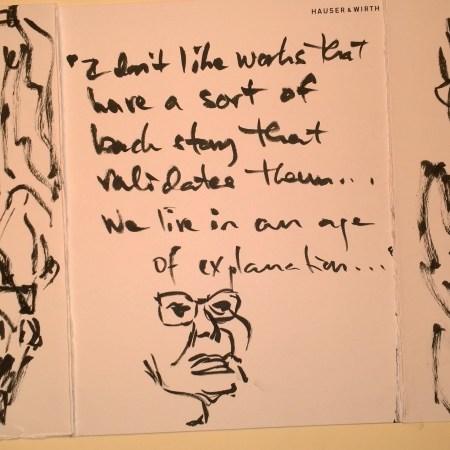 HAUSER & WIRTH
"I don't like works that
have a sort of
back story that
validates them...
We live in an age
of explanation..."